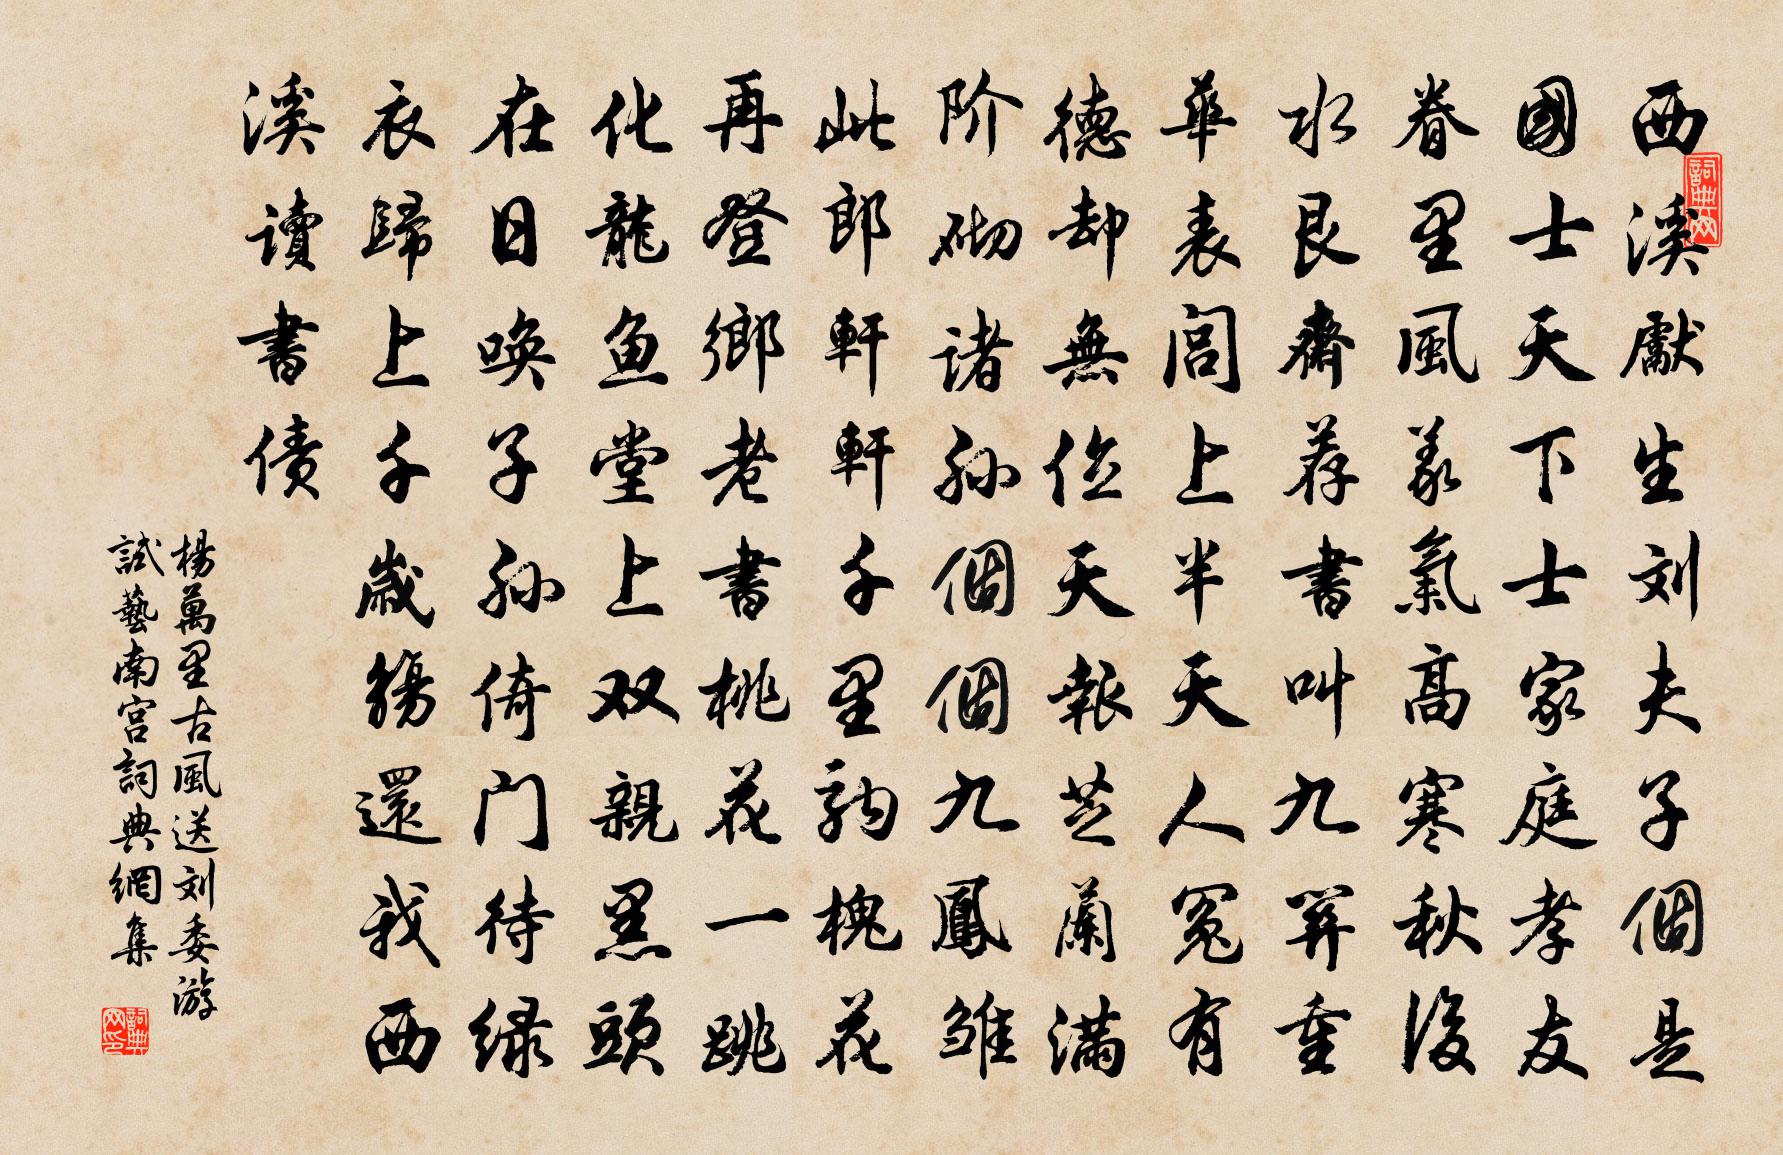 西溪獻生刘夫子個是
國士天下士家庭孝友
眷里風義氣高寒秋後
水艮齋荐書叫九閽重
華表閭上半天人冤有
德却無位天報芝蘭滿
阶砌诸孙個個九鳳雏
此郎軒軒千里駒槐花
再登鄉老書桃花一跳
化龍鱼堂上双親黑頭
在日唤子孙倚门待绿
衣歸上千歲觴還我西
溪讀書债
楊萬里古風送刘委游
試藝南宫詞典網集
詞典网
詞典网印